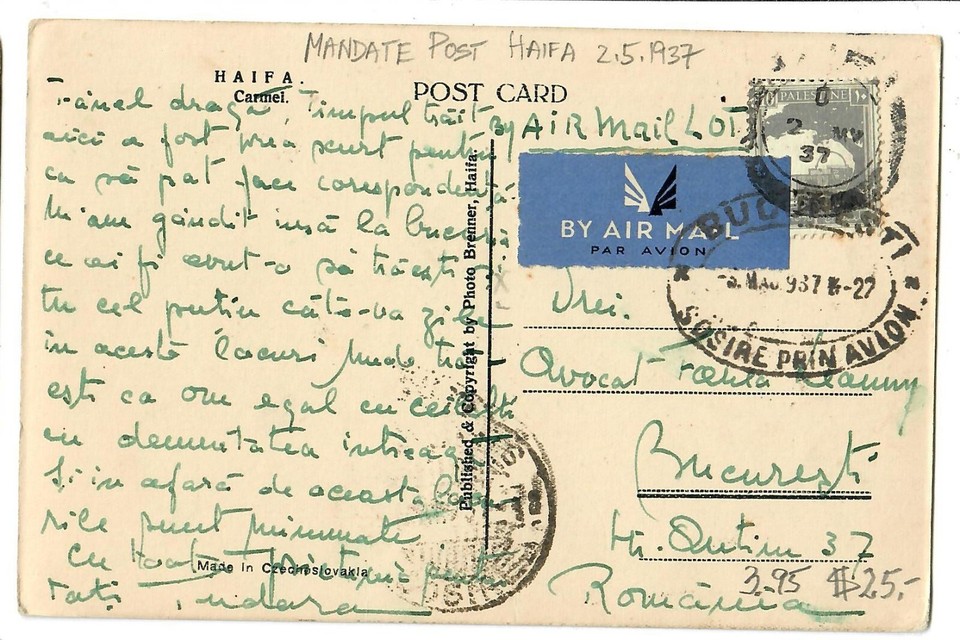 MANDATE POST HAIFA 2.5.1937
HAIFA.
Carmel.
POST CARD
dragă, Timpul trăit
aici a fost prea scurt pentru
ca să pot face corespondență
M'am gândit însă la bucuria
ce ai fi avut-o să trăești și
tu cel puțin câte-va zile
în aceste locuri unde
ești ca om egal cu ceilalți
cu demnitatea întreagă
Și în afară de aceasta
rile sunt minunate
Cu toată pentru
toți
Published & Copyright by Photo Brenner, Haifa.
Made in Czechoslovakia
By AiR Mail LOT
BY AIR MAIL
PAR AVION
PALESTINE
2 MY
37
BUCUREȘTI
MAI 937 -22
SOSIRE PRIN AVION
Drei.
Avocat
București
Str. Antim 37
România
3.95 $25.-